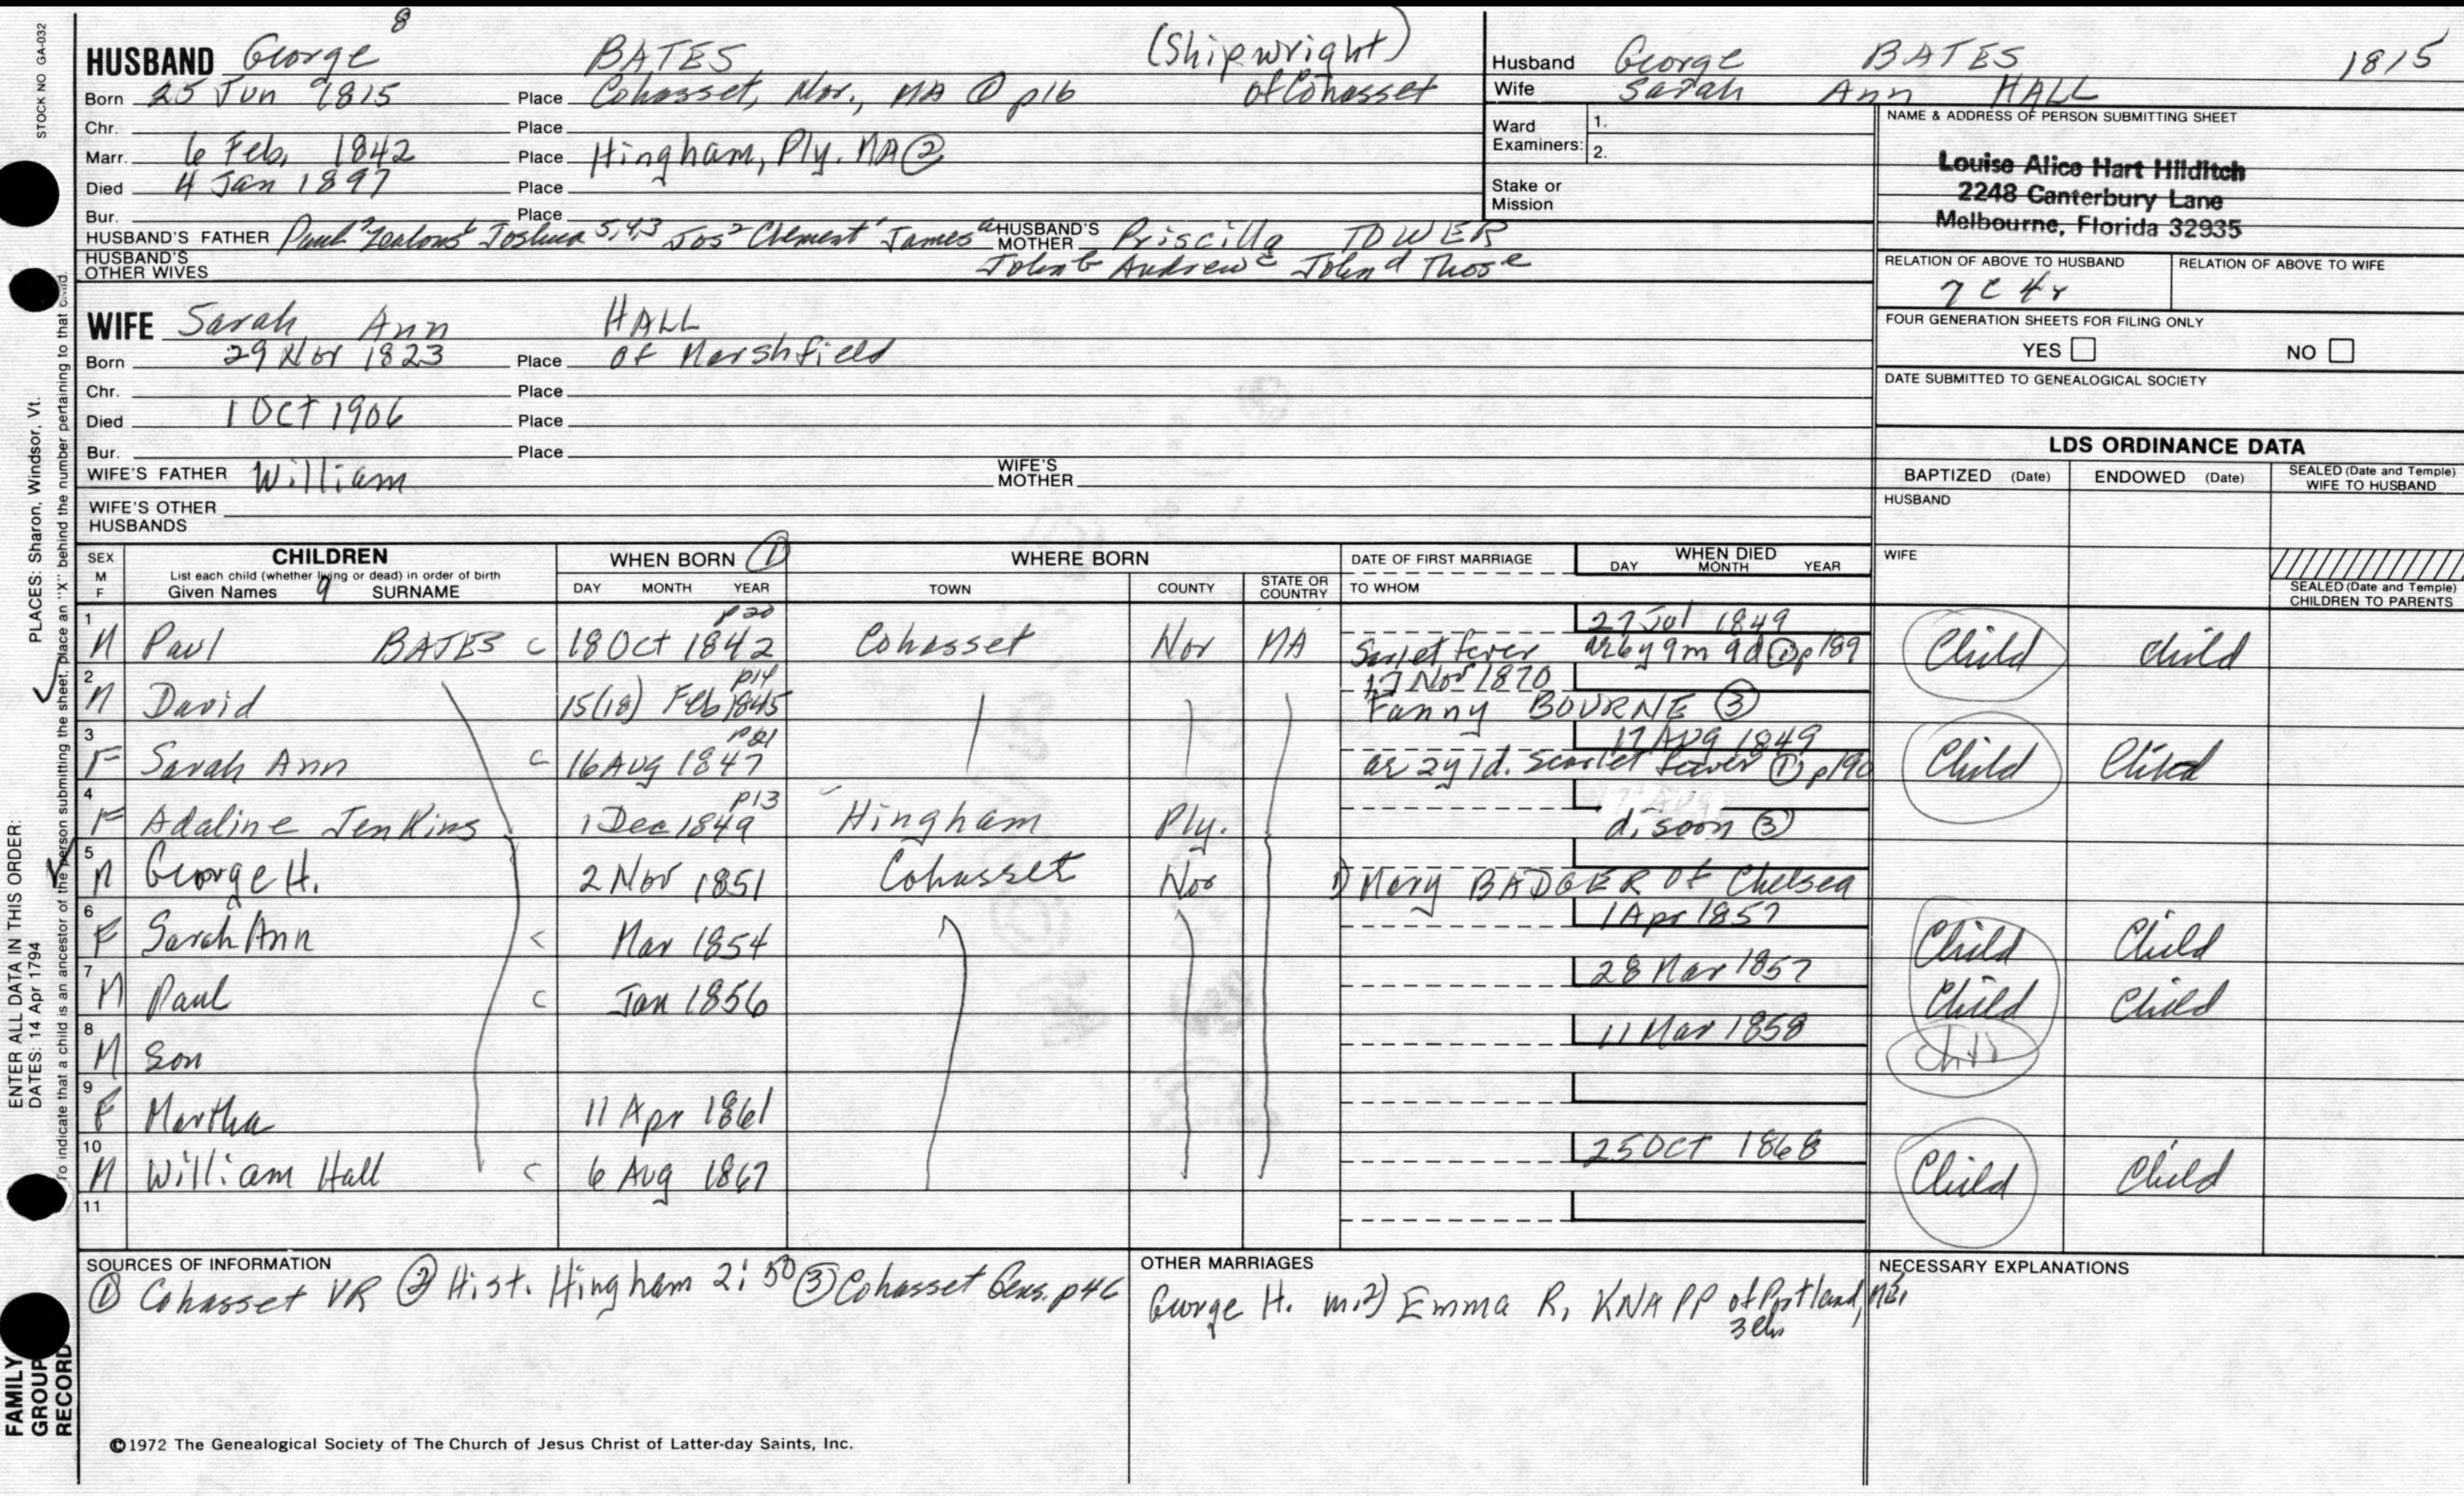 STOCK NO GA-032
8
HUSBAND George BATES (Shipwright)
Born 25 Jun 1815 Place Cohasset, Nor., MA ① p16 of Cohasset
Chr. Place
Marr. 6 Feb, 1842 Place Hingham, Ply. MA ②
Died 4 Jan 1897 Place
Bur. Place
HUSBAND'S FATHER Paul 7 Zealous 6 Joshua 5,4,3 Jos 2 Clement 1 James a HUSBAND'S MOTHER Priscilla TOWER
HUSBAND'S OTHER WIVES John b Andrew c John d Thos e
Husband George BATES 1815
Wife Sarah Ann HALL
Ward Examiners: 1.
2.
Stake or Mission
NAME & ADDRESS OF PERSON SUBMITTING SHEET
Louise Alice Hart Hilditch
2248 Canterbury Lane
Melbourne, Florida 32935
RELATION OF ABOVE TO HUSBAND RELATION OF ABOVE TO WIFE
7 C 4r
FOUR GENERATION SHEETS FOR FILING ONLY
YES NO
DATE SUBMITTED TO GENEALOGICAL SOCIETY
WIFE Sarah Ann HALL
Born 29 Nov 1823 Place of Marshfield
Chr. Place
Died 1 OCT 1906 Place
Bur. Place
WIFE'S FATHER William WIFE'S MOTHER
WIFE'S OTHER HUSBANDS
LDS ORDINANCE DATA
BAPTIZED (Date) ENDOWED (Date) SEALED (Date and Temple) WIFE TO HUSBAND
HUSBAND
WIFE
SEALED (Date and Temple) CHILDREN TO PARENTS
SEX M F CHILDREN WHEN BORN ① WHERE BORN DATE OF FIRST MARRIAGE WHEN DIED
List each child (whether living or dead) in order of birth
Given Names 9 SURNAME DAY MONTH YEAR TOWN COUNTY STATE OR COUNTRY TO WHOM DAY MONTH YEAR
p20 27 Jul 1849
1 M Paul BATES C 18 Oct 1842 Cohasset Nor MA Scarlet fever ae 6y 9m 9d ① p189 Child child
p14 17 Nov 1870
2 M David 15(18) Feb 1845 Fanny BOURNE ③
p21 17 Aug 1849
3 F Sarah Ann C 16 Aug 1847 ae 2y 1d. Scarlet fever ① p190 Child Child
p13
4 F Adaline Jenkins 1 Dec 1849 Hingham Ply. d. soon ③
5 M George H. 2 Nov 1851 Cohasset Nor 1) Mary BADGER of Chelsea
1 Apr 1857
6 F Sarah Ann C Mar 1854 Child Child
28 Mar 1857
7 M Paul C Jan 1856 Child Child
11 Mar 1858
8 M Son Child
9 F Martha 11 Apr 1861
25 OCT 1868
10 M William Hall C 6 Aug 1867 Child Child
11
SOURCES OF INFORMATION
① Cohasset VR ② Hist. Hingham 2:50 ③ Cohasset Gens. p46
OTHER MARRIAGES
George H. m.2) Emma R. KNAPP of Portland, ME,
3 ch
NECESSARY EXPLANATIONS
©1972 The Genealogical Society of The Church of Jesus Christ of Latter-day Saints, Inc.
FAMILY GROUP RECORD
ENTER ALL DATA IN THIS ORDER:
DATES: 14 Apr 1794 PLACES: Sharon, Windsor, Vt.
To indicate that a child is an ancestor of the person submitting the sheet, place an "X" behind the number pertaining to that child.